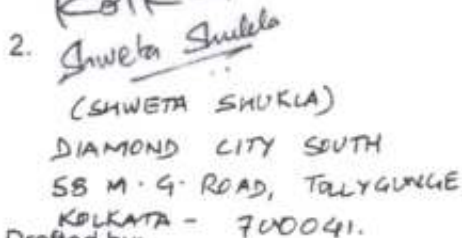 2. Shweta Shukla
(SHWETA SHUKLA)
DIAMOND CITY SOUTH
58 M. G. ROAD, TOLLYGUNGE
KOLKATA - 700041.
Drafted by: